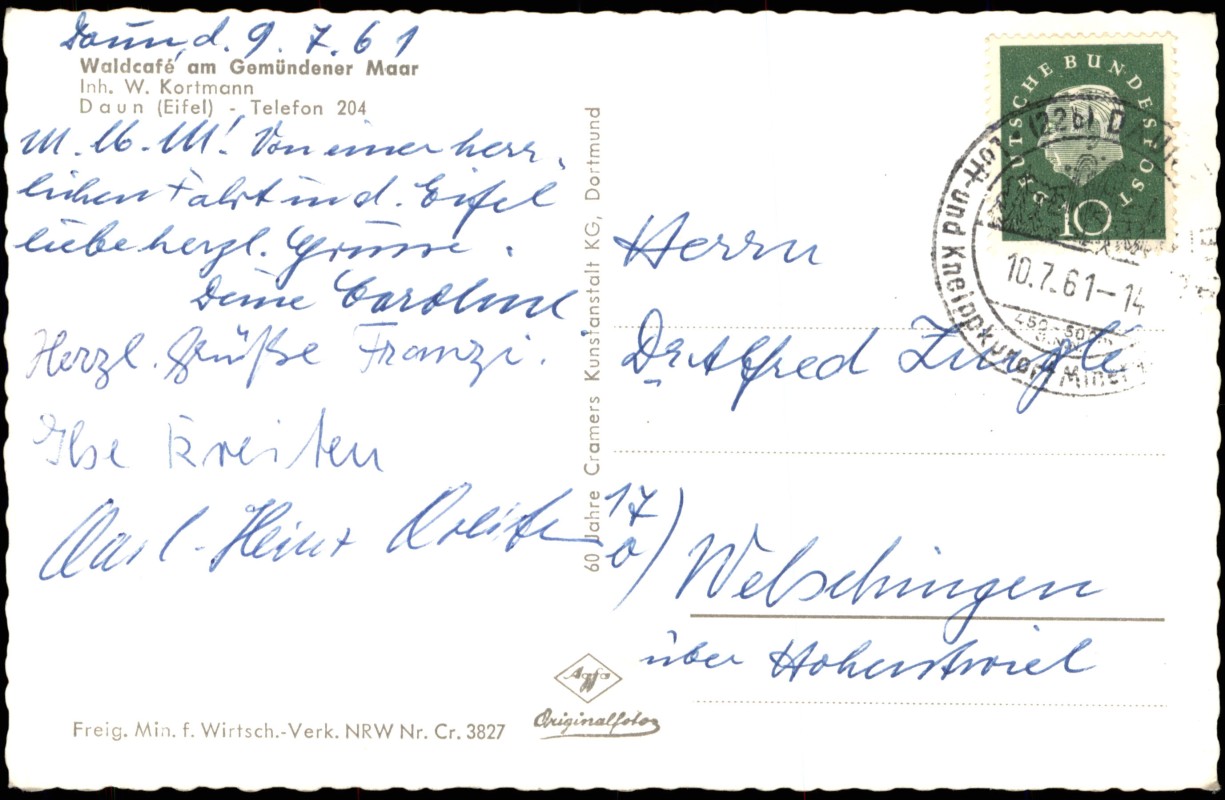 Daun, d. 9. 7. 61
Waldcafé am Gemündener Maar
Inh. W. Kortmann
Daun (Eifel) - Telefon 204
Von einer herr-
lichen Fahrt in d. Eifel
liebe herzl. Grüsse.
Deine Caroline
Herzl. Grüße Franzi.
Ilse Kreiten
Karl-Heinz Kreiten
60 Jahre Cramers Kunstanstalt KG, Dortmund
DEUTSCHE BUNDESPOST
10
(22b) D
10.7.61-14
und Kneippkurort Miner
Herrn
Dr. Alfred Zürgli
17
b)
Welschingen
über Hohentwiel
Agfa
Originalfoto
Freig. Min. f. Wirtsch.-Verk. NRW Nr. Cr. 3827